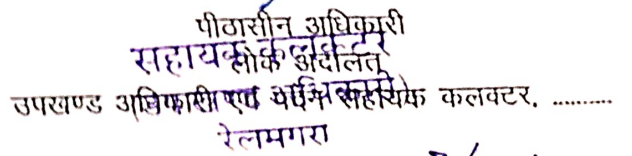 पीठासीन अधिकारी
सहायक कलक्टर
लोक अदालत
उपखण्ड अधिकारी एवं पदेन सहायक कलक्टर, ............
रेलमगरा